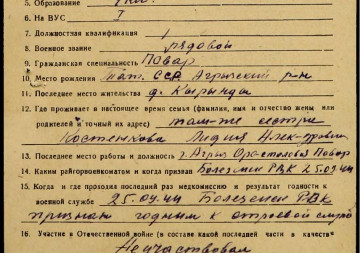 5. Образование
6. На ВУС I
7. Должностная квалификация
8. Военное звание рядовой
9. Гражданская специальность Повар
10. Место рождения Тат. ССР Агрызский р-н
11. Последнее место жительства д. Кырынды
12. Где проживает в настоящее время семья (фамилия, имя и отчество жены или
родителей и точный их адрес) там-же сестра
Лидия
13. Последнее место работы и должность г. Агрыз Повар
14. Каким райгорвоенкоматом и когда призван РВК 25.09.44
15. Когда и где проходил последний раз медкомиссию и результат годности к
военной службе 25.09.44 РВК
признан годным к строевой службе
16. Участие в Отечественной войне (в составе какой последней части в качестве
Не участвовал